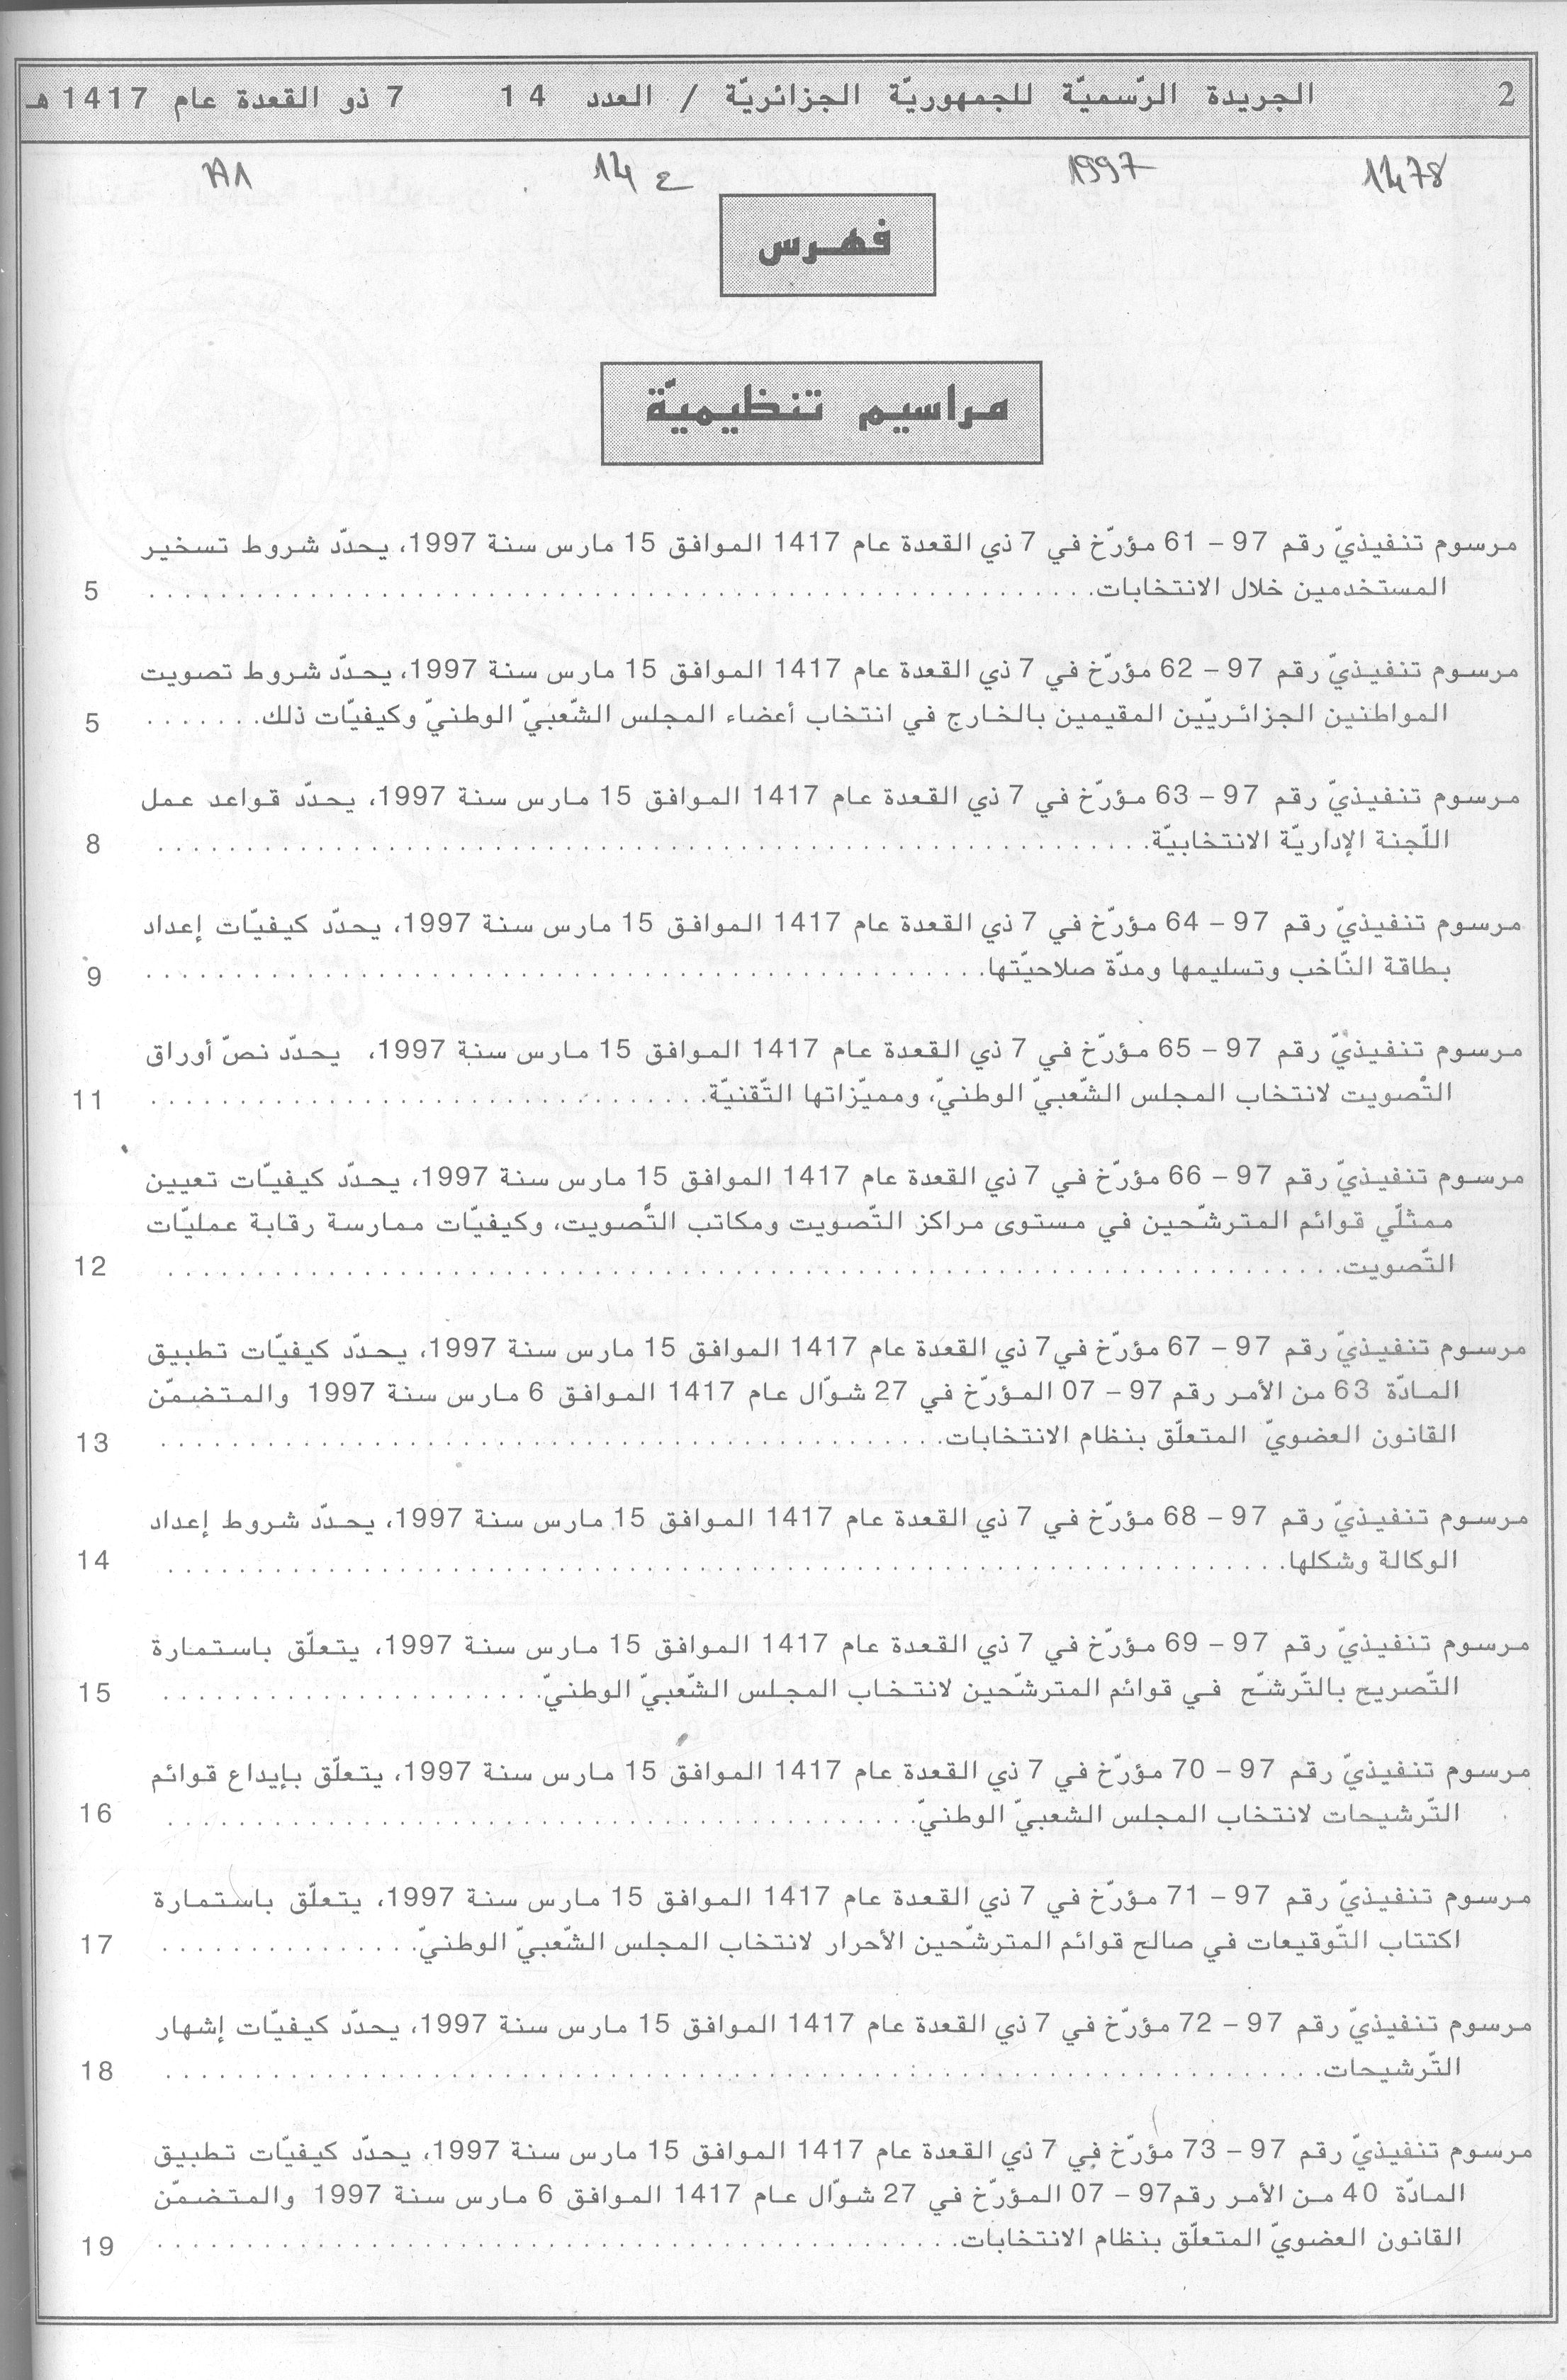 2 الجريدة الرّسميّة للجمهوريّة الجزائريّة / العدد 14 7 ذو القعدة عام 1417 هـ
1478 1997 ع 14
فهرس
مراسيم تنظيميّة
مرسوم تنفيذيّ رقم 97 – 61 مؤرّخ في 7 ذي القعدة عام 1417 الموافق 15 مارس سنة 1997، يحدّد شروط تسخير
المستخدمين خلال الانتخابات. 5
مرسوم تنفيذيّ رقم 97 – 62 مؤرّخ في 7 ذي القعدة عام 1417 الموافق 15 مارس سنة 1997، يحدّد شروط تصويت
المواطنين الجزائريّين المقيمين بالخارج في انتخاب أعضاء المجلس الشّعبيّ الوطنيّ وكيفيّات ذلك. 5
مرسوم تنفيذيّ رقم 97 – 63 مؤرّخ في 7 ذي القعدة عام 1417 الموافق 15 مارس سنة 1997، يحدّد قواعد عمل
اللّجنة الإداريّة الانتخابيّة. 8
مرسوم تنفيذيّ رقم 97 – 64 مؤرّخ في 7 ذي القعدة عام 1417 الموافق 15 مارس سنة 1997، يحدّد كيفيّات إعداد
بطاقة النّاخب وتسليمها ومدّة صلاحيّتها. 9
مرسوم تنفيذيّ رقم 97 – 65 مؤرّخ في 7 ذي القعدة عام 1417 الموافق 15 مارس سنة 1997، يحدّد نصّ أوراق
التّصويت لانتخاب المجلس الشّعبيّ الوطنيّ، ومميّزاتها التّقنيّة. 11
مرسوم تنفيذيّ رقم 97 – 66 مؤرّخ في 7 ذي القعدة عام 1417 الموافق 15 مارس سنة 1997، يحدّد كيفيّات تعيين
ممثلّي قوائم المترشّحين في مستوى مراكز التّصويت ومكاتب التّصويت، وكيفيّات ممارسة رقابة عمليّات
التّصويت. 12
مرسوم تنفيذيّ رقم 97 – 67 مؤرّخ في 7 ذي القعدة عام 1417 الموافق 15 مارس سنة 1997، يحدّد كيفيّات تطبيق
المادّة 63 من الأمر رقم 97 – 07 المؤرّخ في 27 شوّال عام 1417 الموافق 6 مارس سنة 1997 والمتضمّن
القانون العضويّ المتعلّق بنظام الانتخابات. 13
مرسوم تنفيذيّ رقم 97 – 68 مؤرّخ في 7 ذي القعدة عام 1417 الموافق 15 مارس سنة 1997، يحدّد شروط إعداد
الوكالة وشكلها. 14
مرسوم تنفيذيّ رقم 97 – 69 مؤرّخ في 7 ذي القعدة عام 1417 الموافق 15 مارس سنة 1997، يتعلّق باستمارة
التّصريح بالتّرشّح في قوائم المترشّحين لانتخاب المجلس الشّعبيّ الوطنيّ. 15
مرسوم تنفيذيّ رقم 97 – 70 مؤرّخ في 7 ذي القعدة عام 1417 الموافق 15 مارس سنة 1997، يتعلّق بإيداع قوائم
التّرشيحات لانتخاب المجلس الشعبيّ الوطنيّ. 16
مرسوم تنفيذيّ رقم 97 – 71 مؤرّخ في 7 ذي القعدة عام 1417 الموافق 15 مارس سنة 1997، يتعلّق باستمارة
اكتتاب التّوقيعات في صالح قوائم المترشّحين الأحرار لانتخاب المجلس الشّعبيّ الوطنيّ. 17
مرسوم تنفيذيّ رقم 97 – 72 مؤرّخ في 7 ذي القعدة عام 1417 الموافق 15 مارس سنة 1997، يحدّد كيفيّات إشهار
التّرشيحات. 18
مرسوم تنفيذيّ رقم 97 – 73 مؤرّخ في 7 ذي القعدة عام 1417 الموافق 15 مارس سنة 1997، يحدّد كيفيّات تطبيق
المادّة 40 من الأمر رقم 97 – 07 المؤرّخ في 27 شوّال عام 1417 الموافق 6 مارس سنة 1997 والمتضمّن
القانون العضويّ المتعلّق بنظام الانتخابات. 19